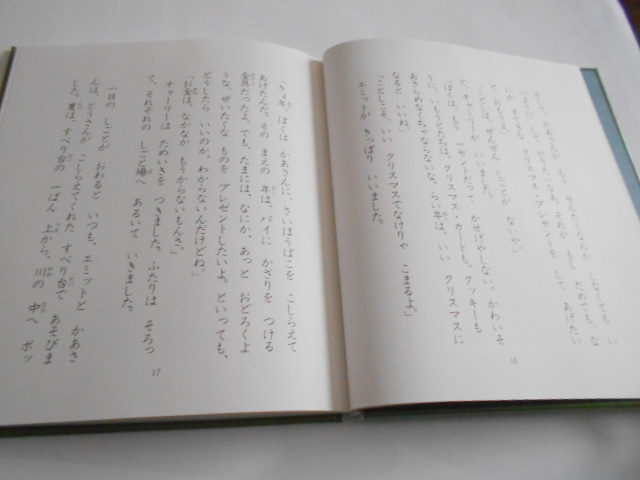 かあさんが もう、せんたくなんか しなくても い
クリスマス・プレゼントを して あげたい
「ことしは、ぜんぜん しごとが ないや。」
と、チャーリーが いいました。
「ぼくは、もう 一セントだって かせげやしない。かわいそ
うに、いもうとたちは、クリスマス・カードも、クッキーも
あきらめなくちゃならないな。らい年は、いい クリスマスに
なると いいね。」
「ことしこそ、いい クリスマスでなけりゃ こまるよ。」
エミットが きっぱり いいました。
16
「きょ年 ぼくは かあさんに、さいほうばこを こしらえて
あげたんだ。その まえの 年は、パイに かざりを つける
金具だったよ。でも、たまには、なにか、あっと おどろくよ
うな、ぜいたくな ものを プレゼントしたいよ。といっても、
どうしたら いいのか、わからないんだけどね。」
「お金は、なかなか もうからないもんさ。」
チャーリーは ためいきを つきました。ふたりは そろっ
て、それぞれの しごと場へ あるいて いきました。
一日の しごとが おわると いつも、エミットと かあさ
んは、とうさんが こしらえてくれた すべり台で あそびま
した。夏は、すべり台の 一ばん 上から、川の 中へ ボッ
17